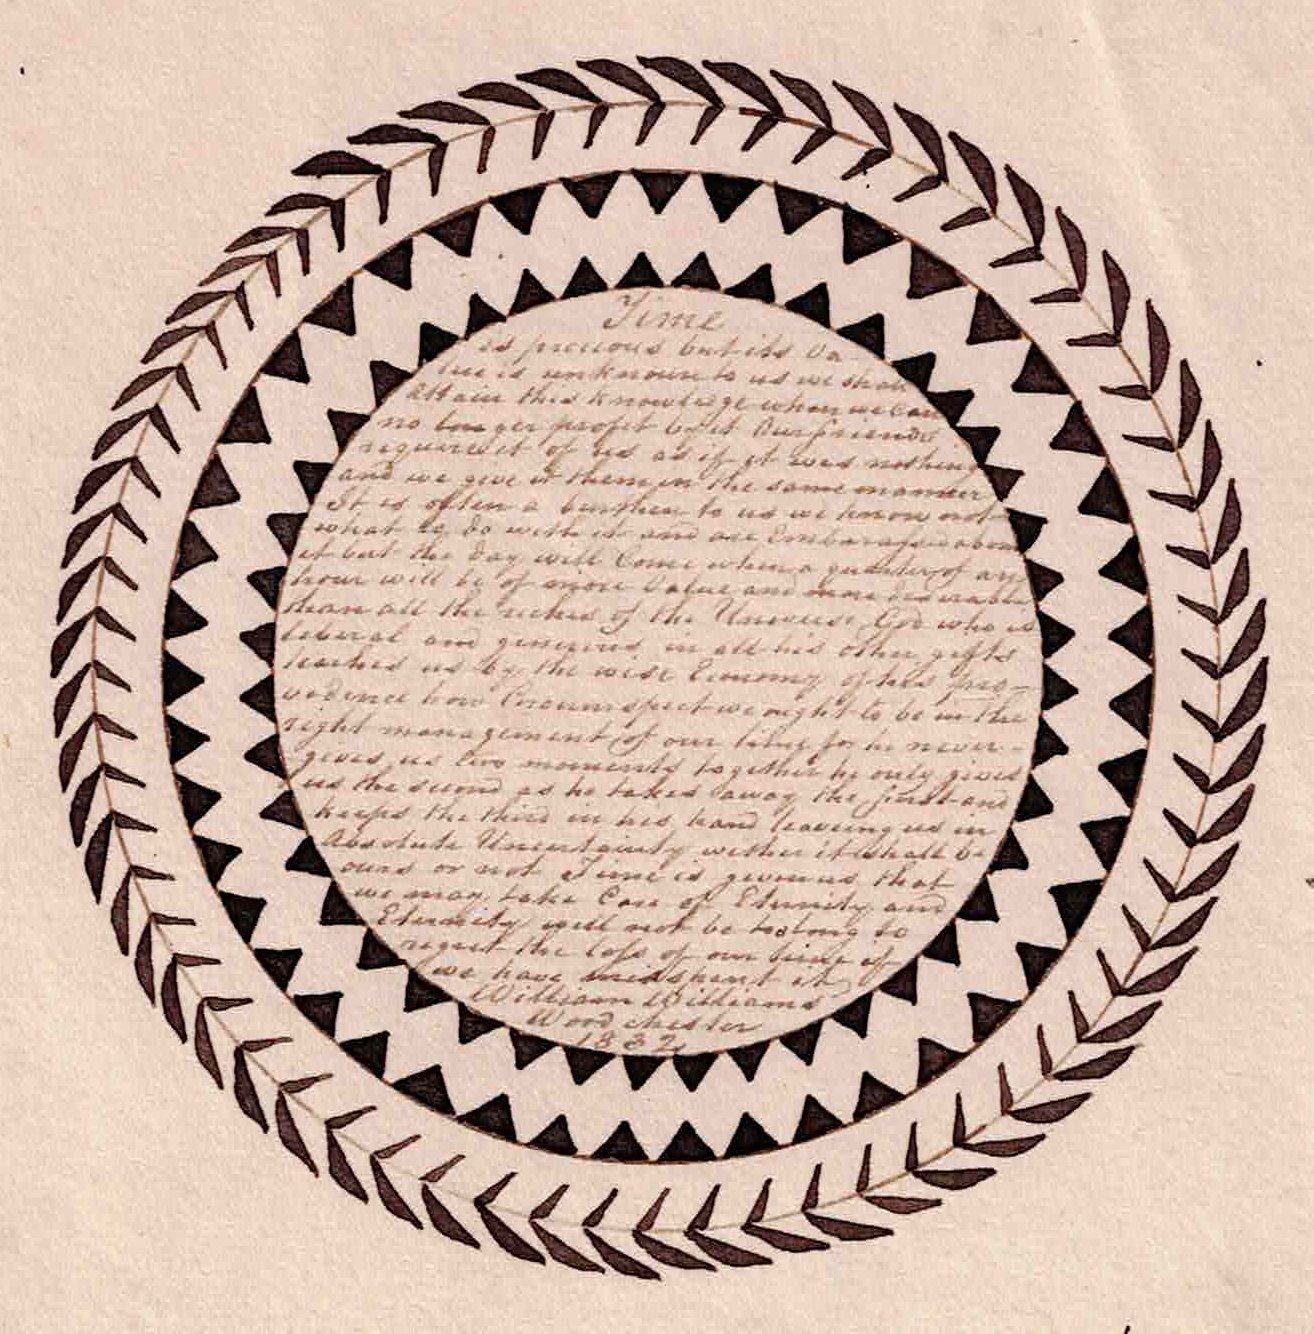 Time
is precious but its Va-
lue is unknown to us we shall
attain this knowledge when we can
no longer profit by it Our friends
require it of us as if it was nothing
and we give it them in the same manner
It is often a burthen to us we know not
what to do with it and are Embarassed about
it but the day will Come when a quarter of an
hour will be of more Value and more desirable
than all the riches of the Universe God who is
leberal and generous in all his other gifts
teaches us by the wise Economy of his pro-
vidence how Circumspect we ought to be in the
right management of our time for he never-
gives us two moments together he only gives
us the second as he takes away the first and
keeps the third in his hand leaveing us in
Absolute Uncertainty wether it shall be
ours or not Time is given us that
we may take Care of Eternity and
Eternity will not be to long to
regret the loss of our time if
we have misspent it
William Williams
Woodchester
1832